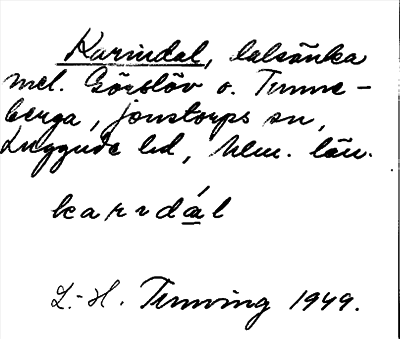 Karindal, dalsänka
mel. Görslöv o. Tunne-
berga, Jonstorps sn,
Luggude hd, Mlm. län.
karıdál
L.-H. Tunving 1949.